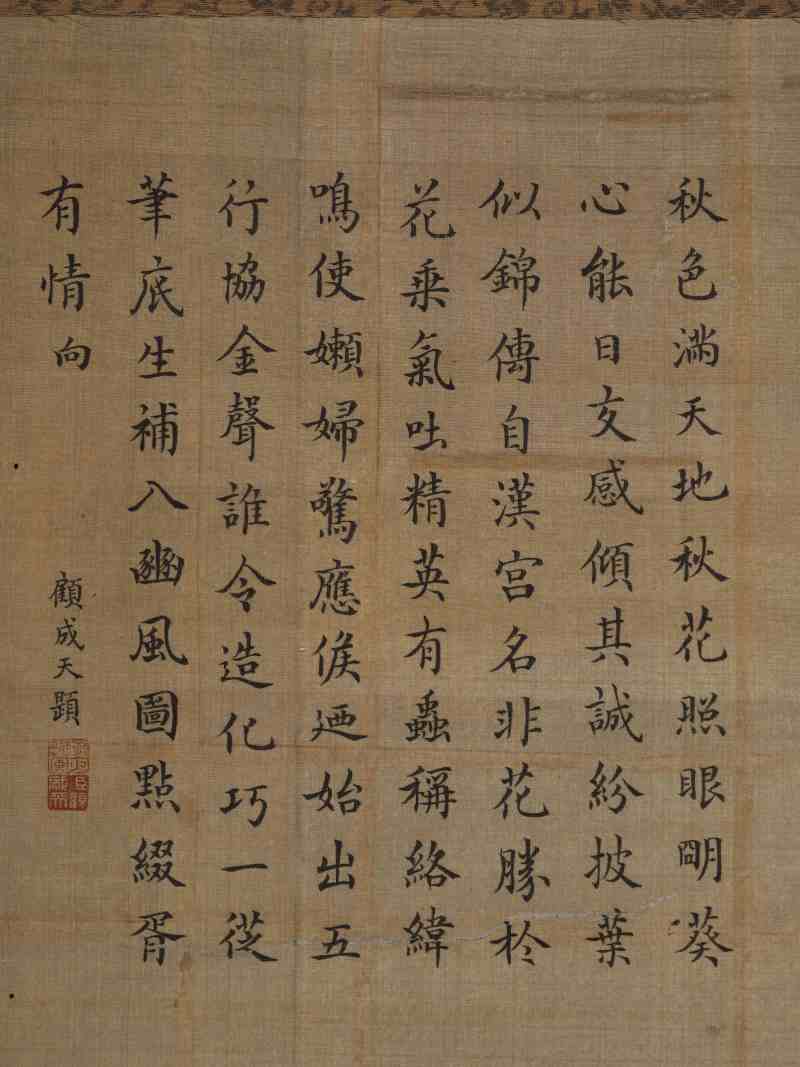 秋色滿天地秋花照眼明葵
心能日友感傾其誠紛披葉
似錦傳自漢宮名非花勝於
花乘氣吐精英有蟲稱絡緯
鳴使嬾婦驚應候廼始出五
行協金聲誰令造化巧一從
筆底生補入豳風圖點綴胥
有情向
顧成天題